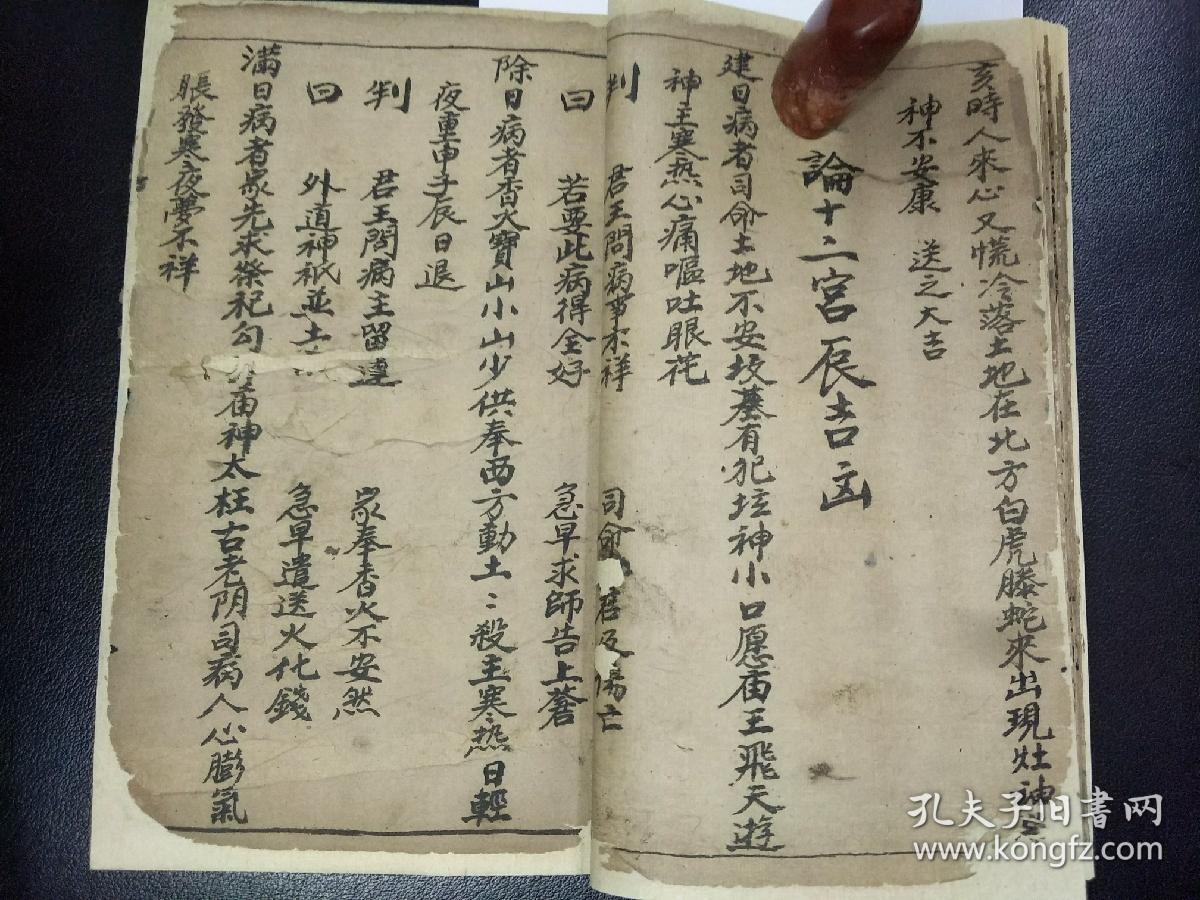 亥時人來心又慌冷落土地在北方白虎騰蛇來出現灶神
神不安康 送之大吉
論十二宮辰吉凶
建日病者司命土地不安坟墓有犯坟神小口愿庙王飛天遊
神主寒热心痛嘔吐眼花
判 君王問病事不祥 司命 旧及傷亡
曰 若要此病得全好 急早求師告上蒼
除日病者香火寶山小山少供奉西方動土〻殺主寒热日輕
夜重申子辰日退
判 君王問病主留連 家奉香火不安然
曰 外道神祇並土 急早遣送火化錢
滿日病者家先求祭祀勾 庙神太枉古老阴司病人心膨氣
脹發寒夜夢不祥
孔夫子旧书网
www.kongfz.com